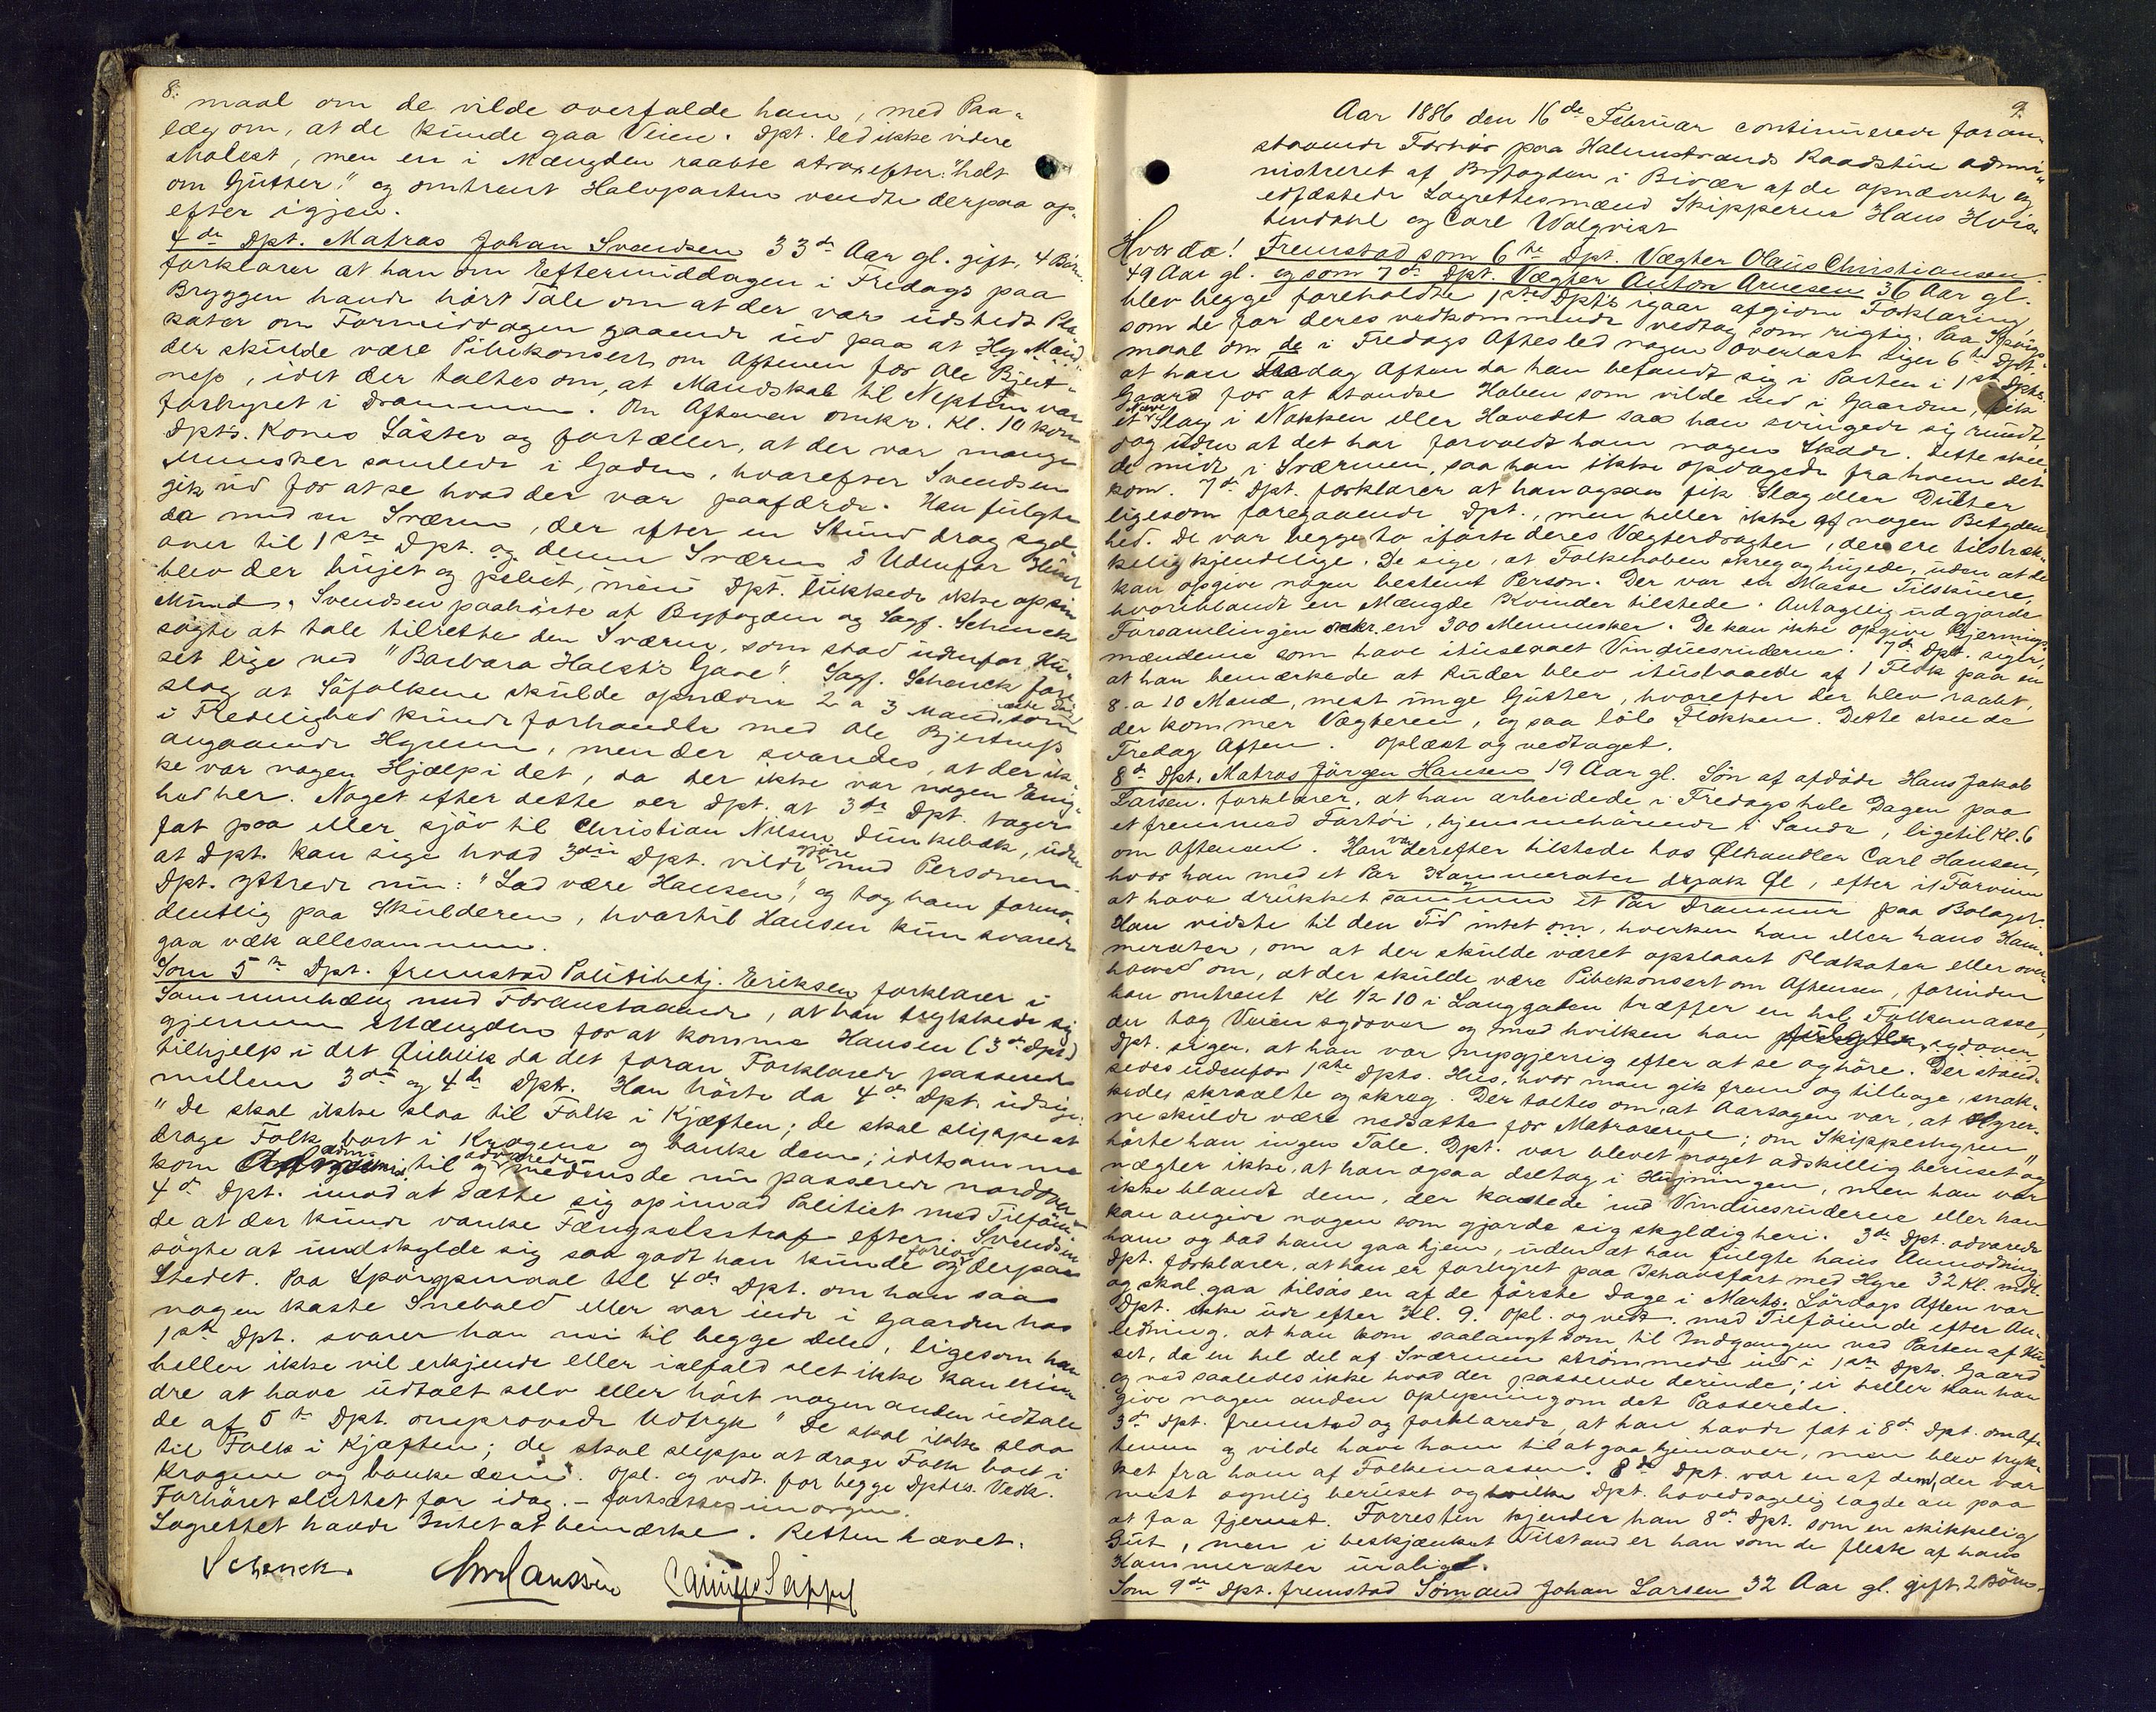 8.
maal om de vilde overfalde ham, med Paa-
læg om, at de kunde gaa Veien. Dpt. led ikke videre
Molest, men en i Mængden raabte strax efter: "holt
om Gutter!" og omtrent Halvparten vendte derpaa op-
efter igjen.
4de Dpt. Matros Johan Svendsen 33de Aar gl. gift, 4 Børn
forklarer at han om Eftermiddagen i Fredags paa
Bryggen havde hørt Tale om at der var udstedt Pla-
kater om Formiddagen gaaende ud paa at
der skulde være Pibekonsert om Aftenen for Ole Bjert-
næs, idet der taltes om, at Mandskab til Neptun var
forhyret i Drammen. Om Aftenen omkr. Kl. 10 kom
Dpts. Kones Søster og fortæller, at der var mange
Mennesker samlede i Gaden, hvorefter Svendsen
gik ud for at se hvad der var paafærde. Han fulgte
da med en Sværm, der efter en Stund drog syd-
over til 1ste Dpt. og denne Sværm. Udenfor Huset
blev der hujet og pebet, men Dpt. lukkede ikke op sin
Mund. Svendsen paahørte at Byfogden og Sagf. Schenck
søgte at tale tilrette den Sværm, som stod udenfor Hu-
set lige ved "Barbara Halst's Gave". Sagf. Schenck fore-
slog at Søfolkene skulde opnævne 2 a 3 Mand, som
i Fredelighed kunde forhandle med Ole Bjertnæs
angaaende Hyrerne, men der svaredes, at der ik-
ke var nogen Hjælp i det, da der ikke var nogen Enig-
hed her. Noget efter dette ser Dpt. at 3de Dpt. tager
fat paa eller sjøv til Christian Nilsen Dunkebæk, uden
at Dpt. kan sige hvad 3die Dpt. vilde gjøre med Personen.
Dpt. yttrede nu: "Lad være Hansen!" og tog ham formo-
dentlig paa Skulderen, hvortil Hansen kun svarede
gaa væk allesammen.
Som 5te Dpt. fremstod Politibetj. Eriksen forklarer i
Sammenhæng med Foranstaaende, at han trykkede sig
gjennem Mængden for at komme Hansen (3de Dpt.)
tilhjelp i det Øieblik da det foran Forklarede passerede
mellem 3de og 4de Dptr. Han hørte da 4de Dpt. udsige:
"De skal ikke slaa til Folk i Kjæften; de skal slippe at
drage Folk bort i Kragene og banke dem; idetsamme
kom til og advarede medens de nu passerede nordover
4de Dpt. imod at sætte sig op imod Politiet med Tilføien-
de at der kunde vanke Fængselsstraf efter. Svendsen
søgte at undskylde sig saa godt han kunde og forlod derpaa
Stedet. Paa Spørgsmaal til 4de Dpt. om han saa
nogen kaste Snebold eller var inde i Gaarden hos
1ste Dpt. svarer han nei til begge Dele, ligesom han
heller ikke vil erkjende eller ialfald slet ikke kan erin-
dre at have udtalt selv eller hørt nogen anden udtale
de af 5te Dpt. omprovede Udtryk "De skal ikke slaa
til Folk i Kjæften; de skal slippe at drage Folk bort i
Kragene og banke dem. Opl. og vedt. for begge Dptrs. Vedk.
Forhøret sluttet for idag. – fortsættes imorgen.
Lagrettet havde Intet at bemærke. Retten hævet.
Schenck.
9.
Aar 1886 den 16de Februar continuerede foran-
staaende Forhør paa Holmestrands Raadstue admi-
nistreret af Byfogden i Bivær af de opnævnte og
edfæstede Lagrettesmænd Skipperne Hans Hvis-
tendahl og Carl Walqvist
Hvor da! Fremstod som 6te Dpt. Vægter Olaus Christiansen
49 Aar gl. og som 7de Dpt. Vægter Anton Arnesen 36 Aar gl.
blev begge foreholdte 1ste Dpt's igaar afgivne Forklaring,
som de for deres vedkommende vedtog som rigtig. Paa Spørgs-
maal om de i Fredags Aftes led nogen overlast siger 6te Dpt.
at han Fredag Aften da han befandt sig i Porten i 1ste Dpts.
Gaard for at standse Hoben som vilde ind i Gaarden, fik
et Slag i Nakken eller Hovedet saa han svingede sig rundt
dog uden at det har forvoldt ham nogen Skade. Dette skee-
de midt i Sværmen, saa han ikke opdagede fra hvem det
kom. 7de Dpt. forklarer at han ogsaa fik Slag eller Dulter
ligesom foregaaende Dpt., men heller ikke af nogen Betyden-
hed. De var begge to iførte deres Vægterdragter, der ere tilstræk-
kelig kjendelige. De sige, at Folkehoben skreg og hujede, uden at de
kan opgive nogen bestemt Person. Der var en Masse Tilskuere,
hvoriblandt en Mængde Kvinder tilstede. Antagelig udgjorde
Forsamlingen omkr. en 300 Mennesker. De kan ikke opgive Gjernings-
mændene som have ituslaaet Vinduesruderne. 7de Dpt. siger,
at han bemærkede at Ruder blev ituslaaede af 1 Flok paa en
8 a 10 Mand, mest unge Gutter, hvorefter der blev raabt,
der kommer Vægteren, og saa løb Flokken. Dette skede
Fredag Aften. Oplæst og vedtaget.
8de Dpt. Matros Jørgen Hansen 19 Aar gl. Søn af afdøde Hans Jakob
Larsen. forklarer, at han arbeidede i Fredags hele Dagen paa
et fremmed Fartøi, hjemmehørende i Sande, ligetil Kl. 6
om Aftenen. Han var derefter tilstede hos Ølhandler Carl Hansen,
hvor han med et Par Kammerater drak Øl, efter i Forveien
at have drukket sammen et Par Drammer paa Bolaget.
Han vidste til den Tid intet om, hverken han eller hans Kam-
merater, om at der skulde været opslaaet Plakater eller over-
hoved om, at der skulde være Pibekonsert om Aftenen, forinden
han omtrent Kl 1/2 10 i Langgaden træffer en hel Folkemasse,
der tog Veien sydover og med hvilken han fulgte sydover.
Dpt. siger, at han var nysgjerrig efter at se og høre. Der stand-
sedes udenfor 1ste Dpts. Hus, hvor man gik frem og tilbage, snak-
kede, skraalte og skreg. Der taltes om, at Aarsagen var, at Hyrer-
ne skulde være nedsatte for Matroserne; om Skipperhyren
hørte han ingen Tale. Dpt. var blevet "noget adskillig beruset" og
nægter ikke, at han ogsaa deltog i Hujningen, men han var
ikke blandt dem, der kastede ind Vinduesruderne eller han
kan angive nogen som gjorde sig skyldig heri. 3de Dpt. advarede
ham og bad ham gaa hjem, uden at han fulgte hans Anmodning.
Dpt. forklarer, at han er forhyret paa Ishavsfart med Hyre 32 Kr. mdl.
og skal gaa tilsøs en af de første Dage i Marts. Lørdags Aften var
Dpt. ikke ude efter Kl. 9. Opl. og vedt. med Tilføiende efter An-
ledning, at han kom saalangt som til Indgangen ved Porten af Hu-
set, da en hel del af Sværmen strømmede ind i 1ste Dpts. Gaard
og ved saaledes ikke hvad der passerede derinde; ei heller kan han
give nogen anden oplysning om det Passerede.
3de Dpt. fremstod og forklarede, at han havde fat i 8de Dpt. om Af-
tenen og vilde have ham til at gaa hjemover, men blev tryk-
ket fra ham af Folkemassen. 8de Dpt. var en af dem, der var
mest synlig beruset og hvilken Dpt. hovedsagelig lagde an paa
at faa fjernet. Forresten kjender han 8de Dpt. som en skikkelig
Gut, men i beskjænket Tilstand er han som de fleste af hans
Kammerater urolig.
Som 9de Dpt. fremstod Sømand Johan Larsen 32 Aar gl. gift, 2 Børn.